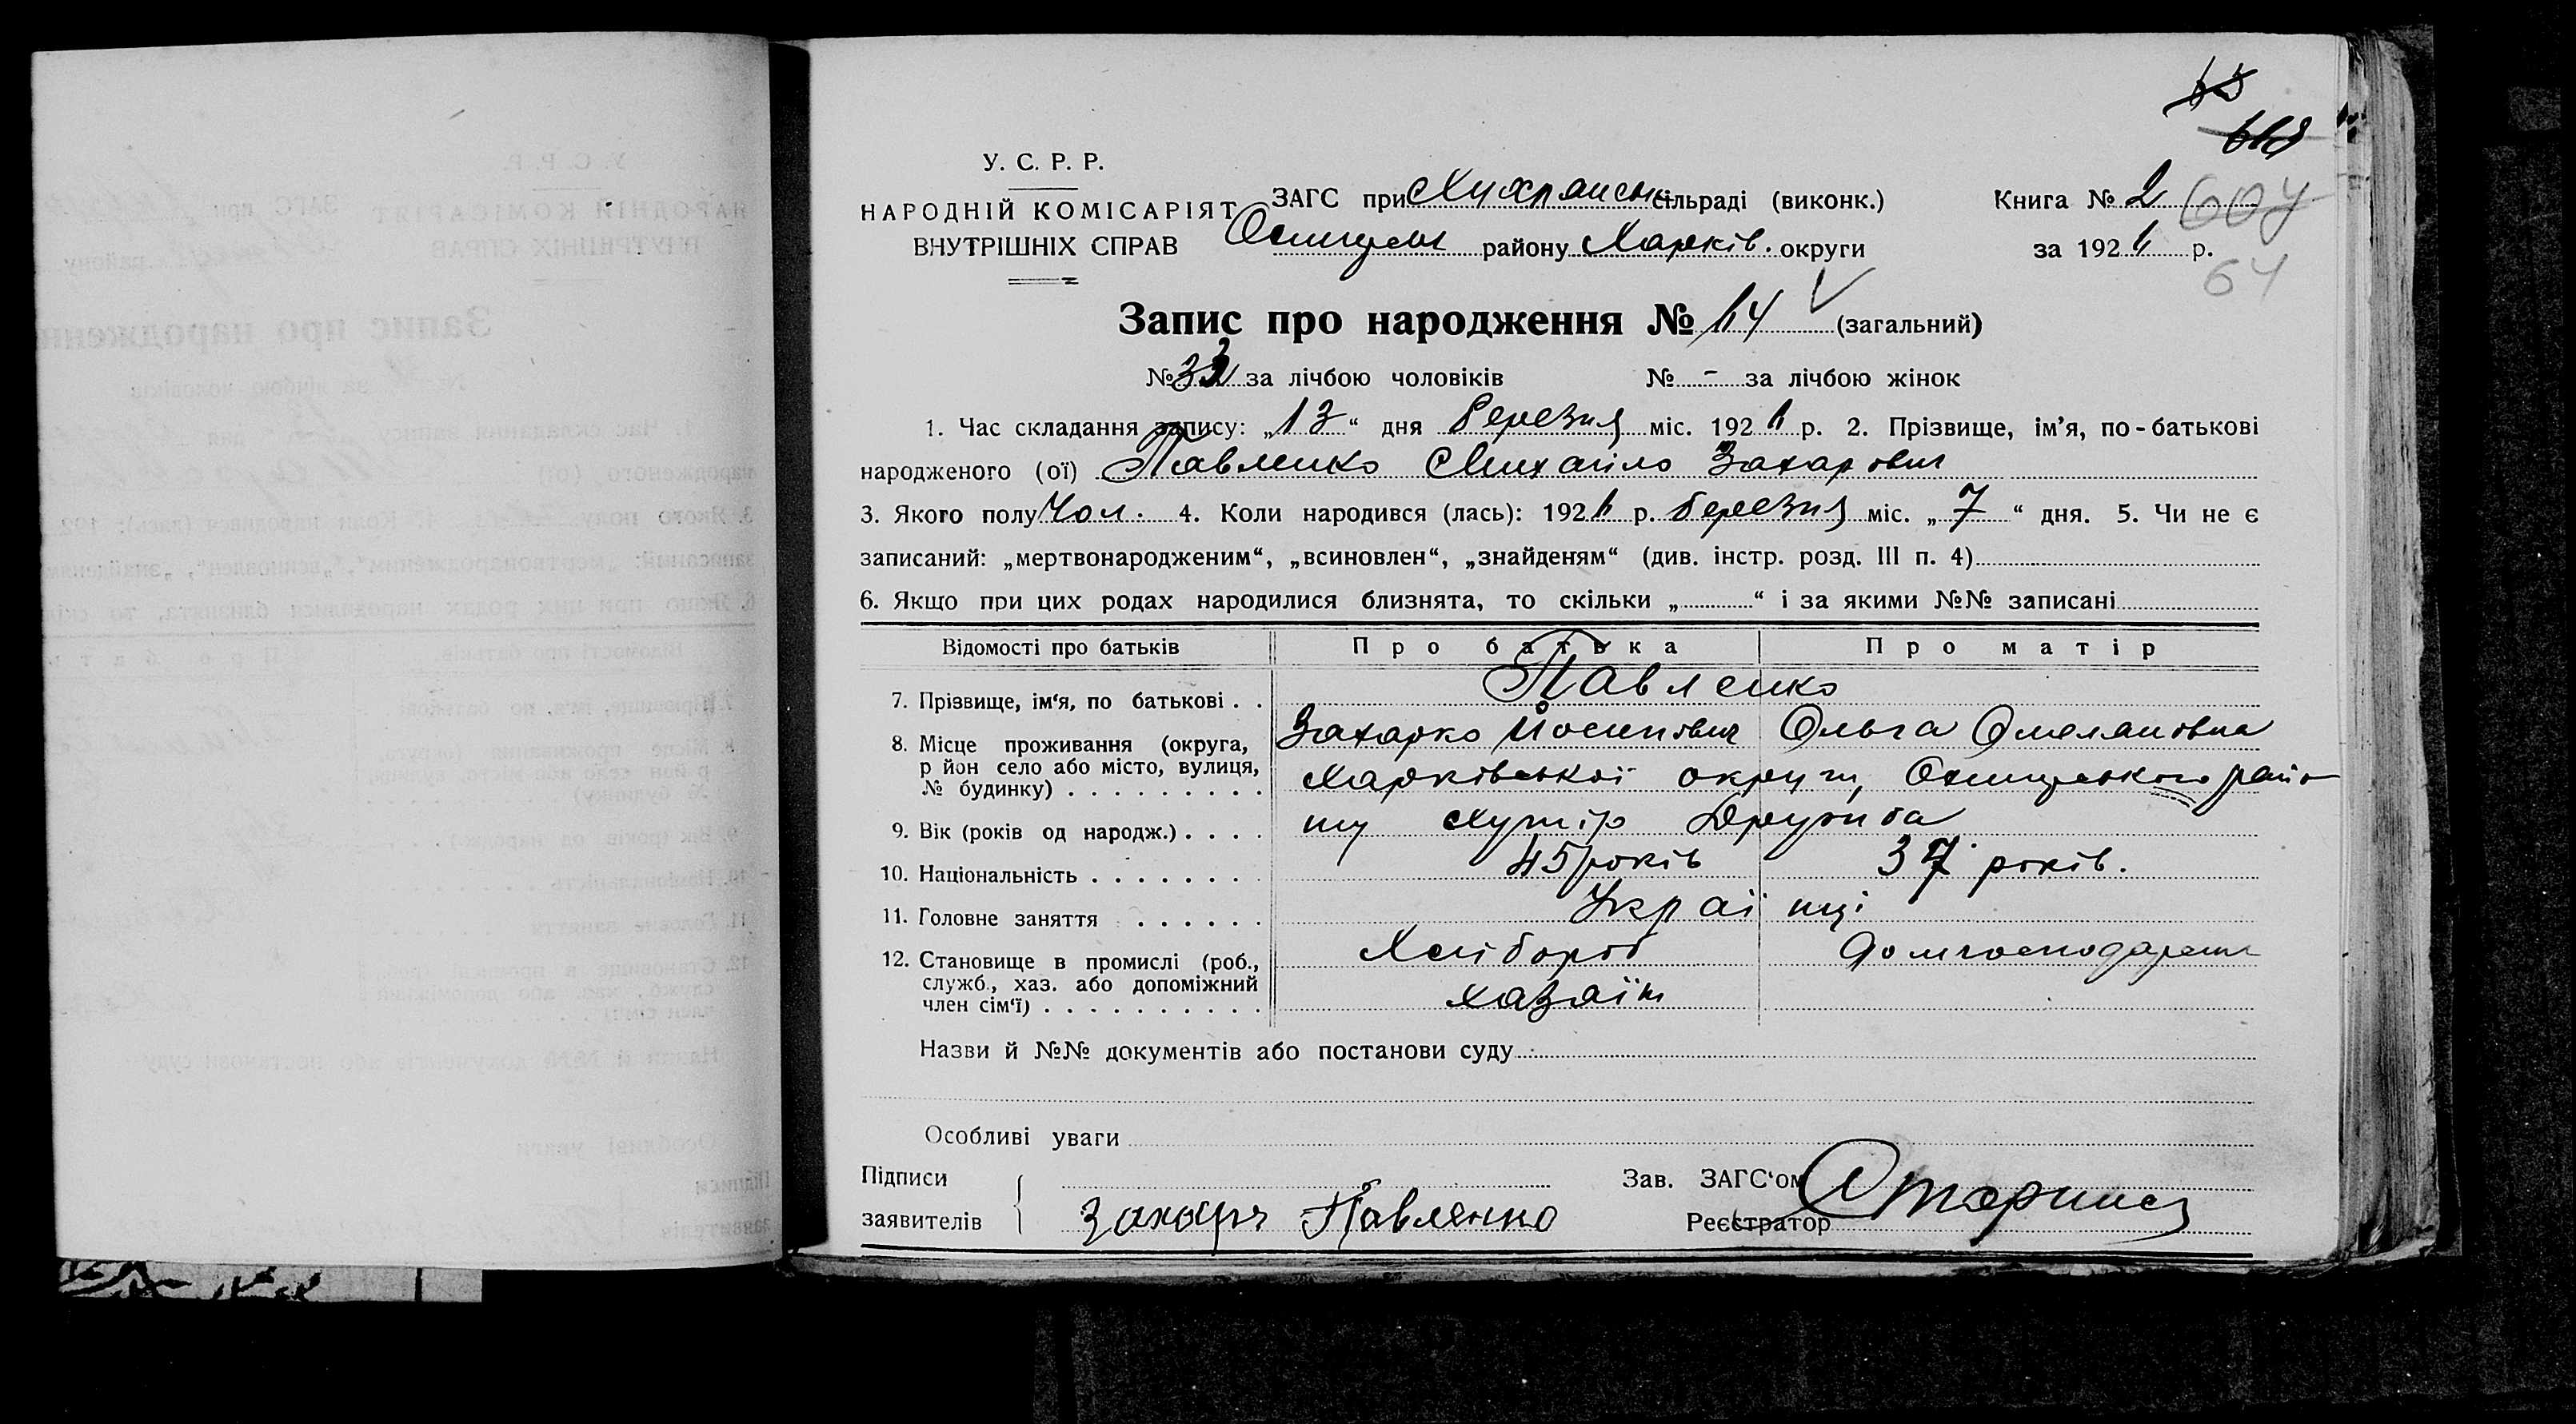 У. С. Р. Р.
НАРОДНІЙ КОМІСАРІЯТ
ВНУТРІШНІХ СПРАВ
ЗАГС при сільраді (виконк.)
району Харків. округи
Книга № 2
за 1926 р.
64
Запис про народження № 64 (загальний)
№ за лічбою чоловіків № - за лічбою жінок
1. Час складання запису: „13“ дня березня міс. 1926 р. 2. Прізвище, ім’я, по-батькові
народженого (ої) Павленко Михайло Захарович
3. Якого полу Чол. 4. Коли народився (лась): 1926 р. березня міс. „7“ дня. 5. Чи не є
записаний: „мертвонародженим“, „всиновлен“, „знайденям“ (див. інстр. розд. III п. 4)
6. Якщо при цих родах народилися близнята, то скільки „ “ і за якими №№ записані
Відомості про батьків Про батька Про матір
7. Прізвище, ім‘я, по батькові . . Павленко
Захарко Йосипович Ольга Омеляновна
8. Місце проживання (округа,
р йон село або місто, вулиця,
№ будинку) . . . . . . . . .
Харківської округи, району
хутір Дружба
9. Вік (років од народж.) . . . . 45 років 37 років.
10. Національність . . . . . . . . Українці
11. Головне заняття . . . . . . Хлібороб Домгосподарка
12. Становище в промислі (роб.,
служб., хаз. або допоміжний
член сім‘ї) . . . . . . . . . .
хазяїн
Назви й №№ документів або постанови суду
Особливі уваги
Підписи
заявителів Захаръ Павленко
Зав. ЗАГС‘ом
Реєстратор